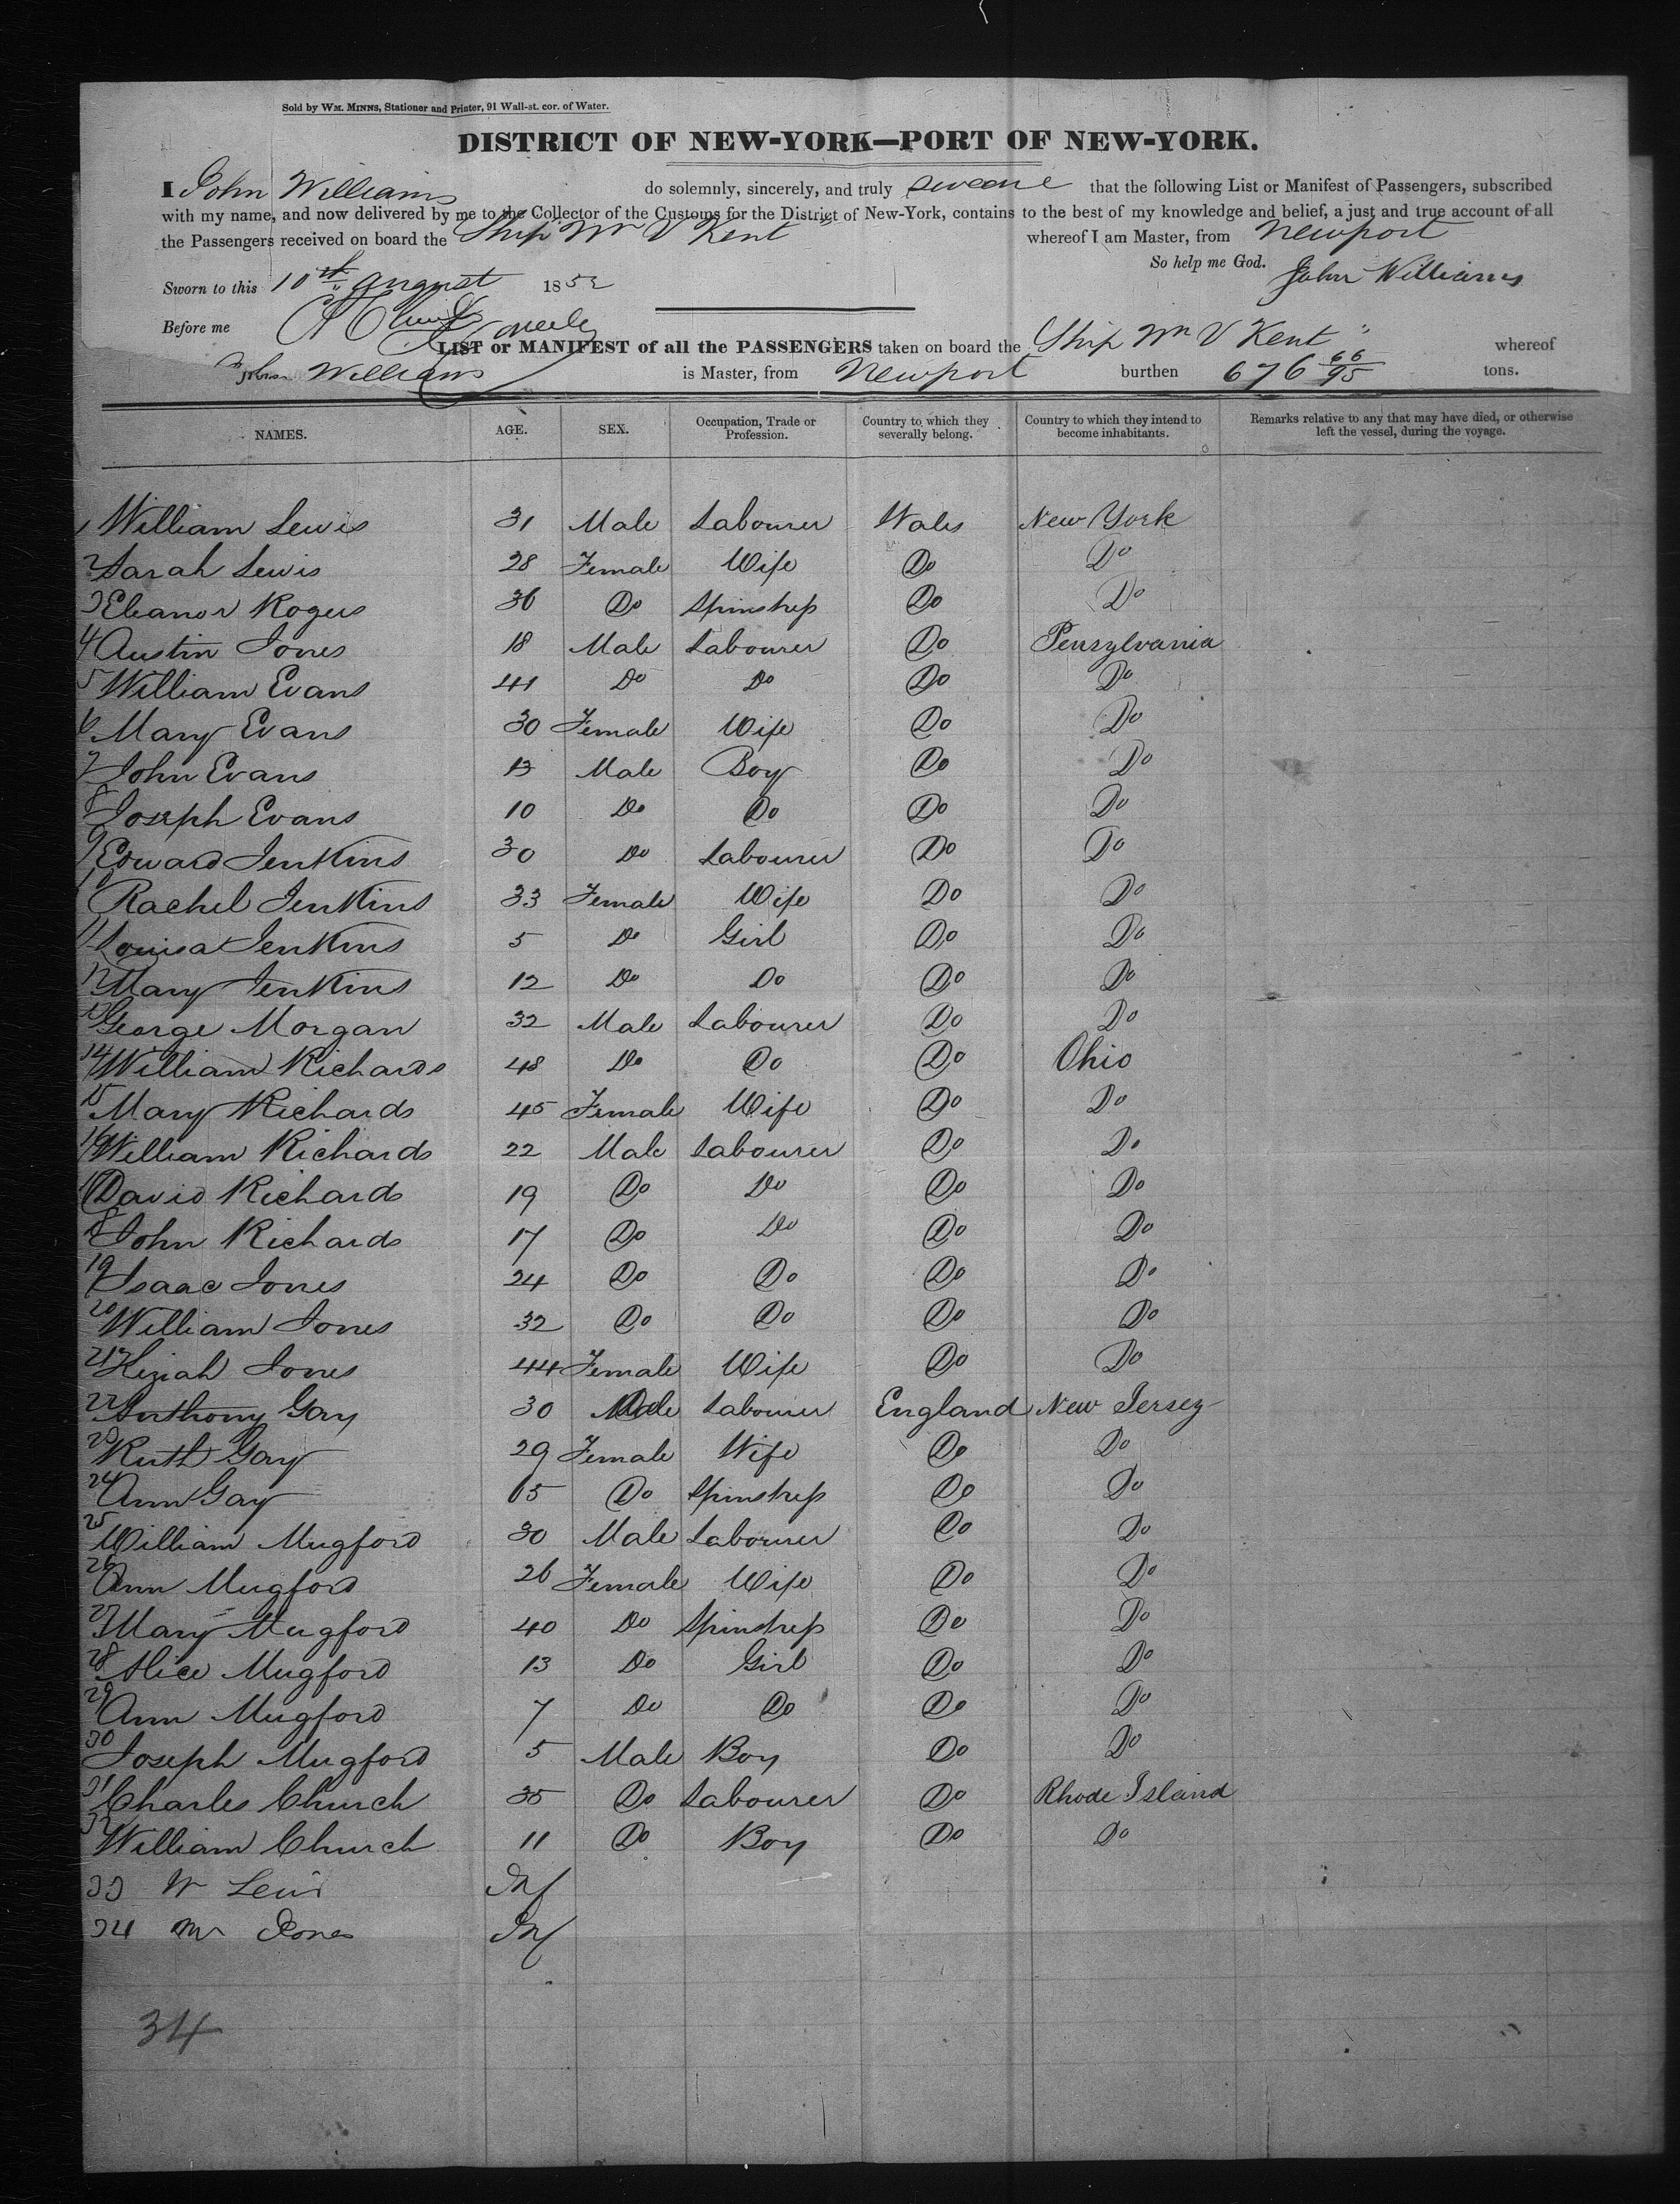 Sold by WM. MINNS, Stationer and Printer, 91 Wall-st. cor. of Water.
DISTRICT OF NEW-YORK—PORT OF NEW-YORK.
I John Williams do solemnly, sincerely, and truly sweare that the following List or Manifest of Passengers, subscribed
with my name, and now delivered by me to the Collector of the Customs for the District of New-York, contains to the best of my knowledge and belief, a just and true account of all
the Passengers received on board the Ship Wm V Kent whereof I am Master, from Newport
So help me God. John Williams
Sworn to this 10th August 1852
Before me
LIST or MANIFEST of all the PASSENGERS taken on board the Ship Wm V Kent whereof
John Williams is Master, from Newport burthen 676 66/95 tons.
NAMES. AGE. SEX. Occupation, Trade or Profession. Country to which they severally belong. Country to which they intend to become inhabitants. Remarks relative to any that may have died, or otherwise left the vessel, during the voyage.
1 William Lewis 31 Male Labourer Wales New York
2 Sarah Lewis 28 Female Wife Do Do
3 Eleanor Rogers 36 Do Spinstress Do Do
4 Austin Jones 18 Male Labourer Do Pensylvania
5 William Evans 41 Do Do Do Do
6 Mary Evans 30 Female Wife Do Do
7 John Evans 13 Male Boy Do Do
8 Joseph Evans 10 Do Do Do Do
9 Edward Jenkins 30 Do Labourer Do Do
10 Rachel Jenkins 33 Female Wife Do Do
11 Louisa Jenkins 5 Do Girl Do Do
12 Mary Jenkins 12 Do Do Do Do
13 George Morgan 32 Male Labourer Do Do
14 William Richards 48 Do Do Do Ohio
15 Mary Richards 45 Female Wife Do Do
16 William Richards 22 Male Labourer Do Do
17 David Richards 19 Do Do Do Do
18 John Richards 17 Do Do Do Do
19 Isaac Jones 24 Do Do Do Do
20 William Jones 32 Do Do Do Do
21 Keziah Jones 44 Female Wife Do Do
22 Anthony Gay 30 Male Labourer England New Jersey
23 Ruth Gay 29 Female Wife Do Do
24 Ann Gay 65 Do Spinstress Do Do
25 William Mugford 30 Male Labourer Do Do
26 Ann Mugford 26 Female Wife Do Do
27 Mary Mugford 40 Do Spinstress Do Do
28 Alice Mugford 13 Do Girl Do Do
29 Ann Mugford 7 Do Do Do Do
30 Joseph Mugford 5 Male Boy Do Do
31 Charles Church 35 Do Labourer Do Rhode Island
32 William Church 11 Do Boy Do Do
33 W Lewis Inf
34 Jones Inf
34